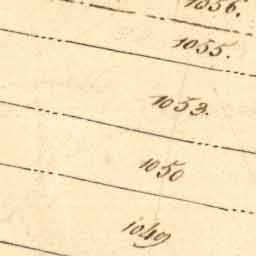 1056.
1055.
1053.
1050
1049